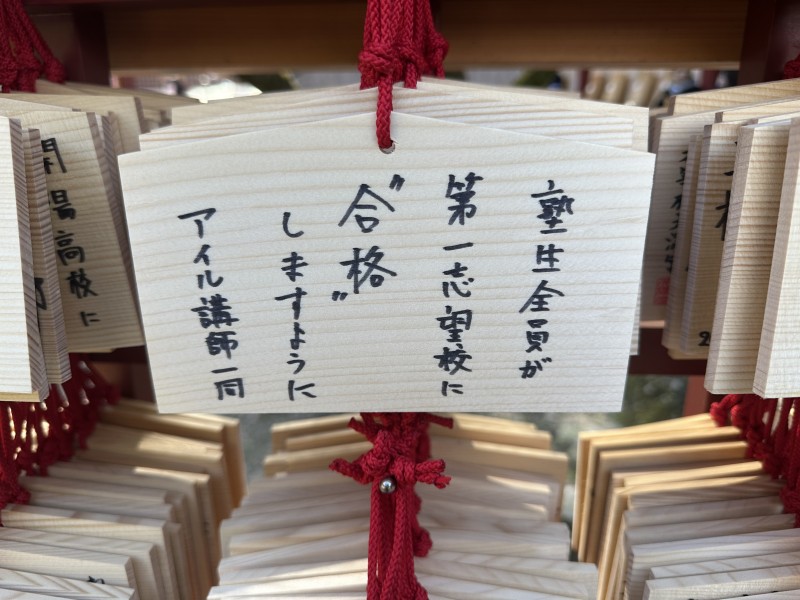 塾生全員が
第一志望校に
〝合格〟
しますように
アイル講師一同
開陽高校に